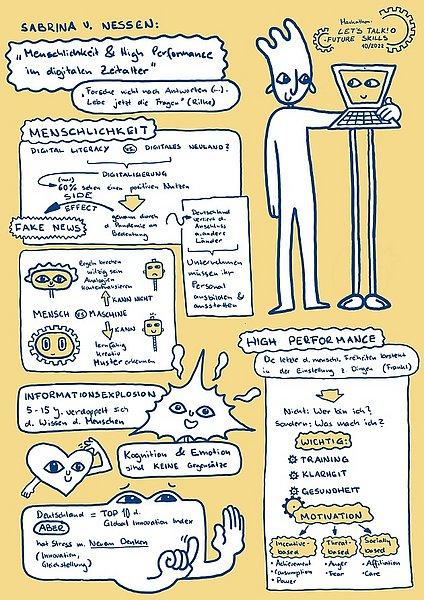 SABRINA v. NESSEN:
„Menschlichkeit & High Performance
im digitalen Zeitalter"
„Forsche nicht nach Antworten (...).
Lebe jetzt die Fragen" (Rilke)
Hackathon:
LET'S TALK!
FUTURE SKILLS
10/2022
MENSCHLICHKEIT
DIGITAL LITERACY VS. DIGITALES NEULAND?
DIGITALISIERUNG
(nur)
60% sehen einen positiven Nutzen
SIDE
EFFECT
FAKE NEWS
gewann durch
d. Pandemie an
Bedeutung
Deutschland
verliert d.
Anschluss
a. andere
Länder
Unternehmen
müssen ihr
Personal
ausbilden &
ausstatten
Regeln brechen
witzig sein
Analogien
kontextualisieren
KANN NICHT
MENSCH VS MASCHINE
KANN
lernfähig
kreativ
Muster erkennen
HIGH PERFORMANCE
Die letzte d. menschl. Freiheiten besteht
in der Einstellung z. Dingen (Frankl)
Nicht: Wer bin ich?
Sondern: Was mach ich?
WICHTIG:
TRAINING
KLARHEIT
GESUNDHEIT
MOTIVATION
Incentive-
based
Achievement
Consumption
Power
Threat-
based
Anger
Fear
Socially
based
Affiliation
Care
INFORMATIONSEXPLOSION
5-15 J. verdoppelt sich
d. Wissen d. Menschen
Kognition & Emotion
sind KEINE Gegensätze
Deutschland = TOP 10 d.
Global Innovation Index
ABER
hat Stress m. Neuem Denken
(Innovation,
Gleichstellung)